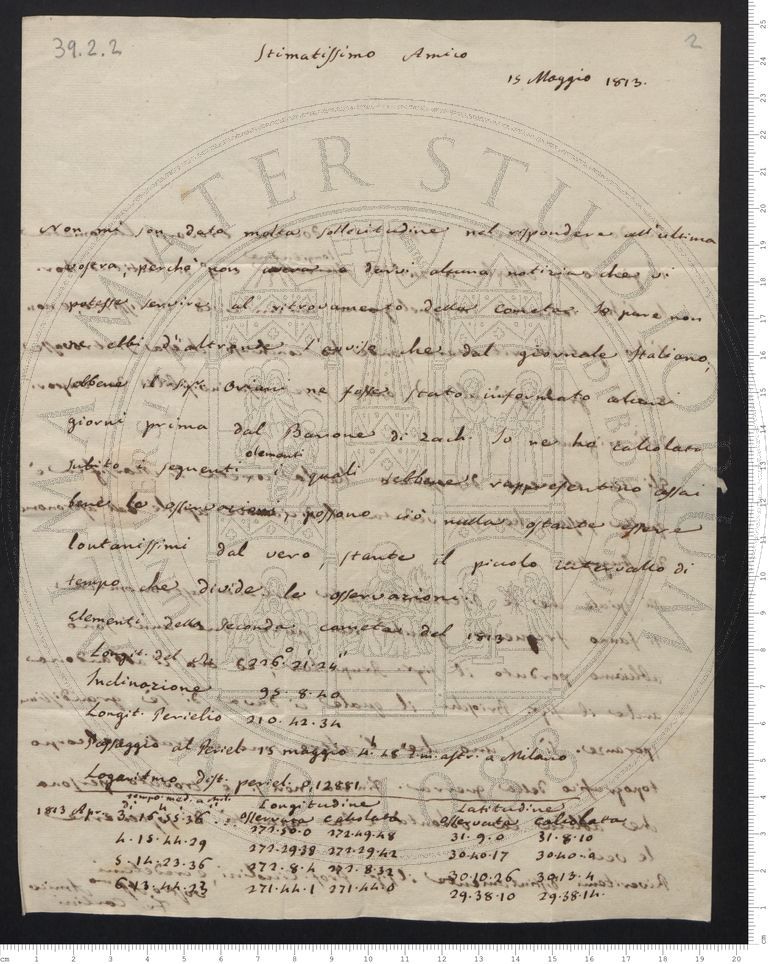 39.2.2
2
Stimatissimo Amico
15 Maggio 1813.
Non mi son data molta sollecitudine nel rispondere all'ultima
vostra, perchè non darvi alcuna notizia che vi
potesse servire al ritrovamento della cometa. Io pure non
ebbi d'altronde l'avviso che dal giornale Italiano,
sebbene il Sig.r Oriani ne fosse stato informato alcuni
giorni prima dal Barone di Zach. Io ne ho calcolato
subito i seguenti elementi i quali sebbene rappresentino assai
bene le osservazioni, possono ciò nulla ostante essere
lontanissimi dal vero, stante il piccolo intervallo di
tempo che divide le osservazioni.
Elementi della seconda cometa del 1813
Longit. del 226° 21' 24"
Inclinazione 95. 8. 40
Longit. Perielio 210. 42. 34
Passaggio al Periel. 15 maggio 4h 48' t. m. astr. a Milano
Logaritmo dist. periel. 0,12881
tempo med. a Mil. Longitudine Latitudine
osservata calcolata osservata calcolata
1813 Apr. 3. 16. 55. 38 272. 50. 0 272. 49. 48 31. 9. 0 31. 8. 10
4. 15. 44. 29 272. 29. 38 272. 29. 42 30. 40. 17 30. 40. 9
5. 14. 23. 36 272. 8. 4 272. 8. 32 30. 10. 26 30. 13. 4
6. 13. 44. 23 271. 44. 1 271. 44. 0 29. 38. 10 29. 38. 14.